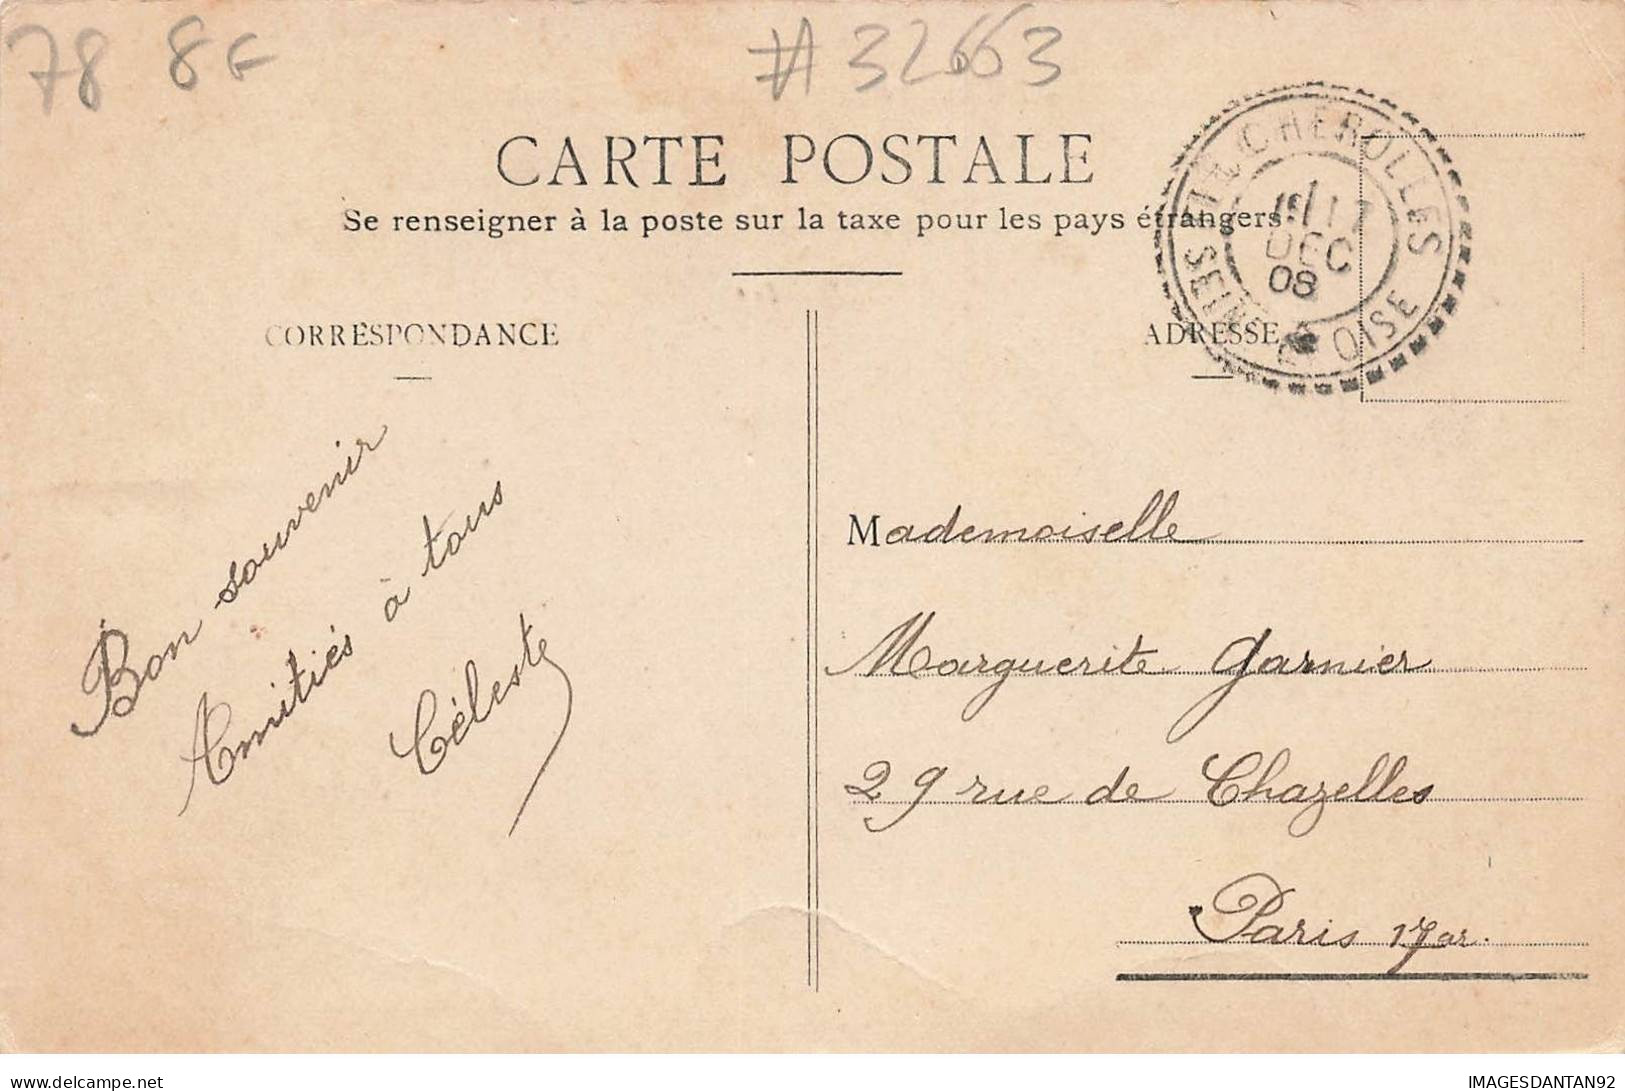 78 8F
#32663
CARTE POSTALE
Se renseigner à la poste sur la taxe pour les pays étrangers
CHEROLLES
17
DEC
08
SEINE ET OISE
CORRESPONDANCE
ADRESSE
Bon souvenir
Amitiés à tous
Céleste
Mademoiselle
Marguerite Garnier
29 rue de Chazelles
Paris 17 ar.
delcampe.net
IMAGESDANTAN92